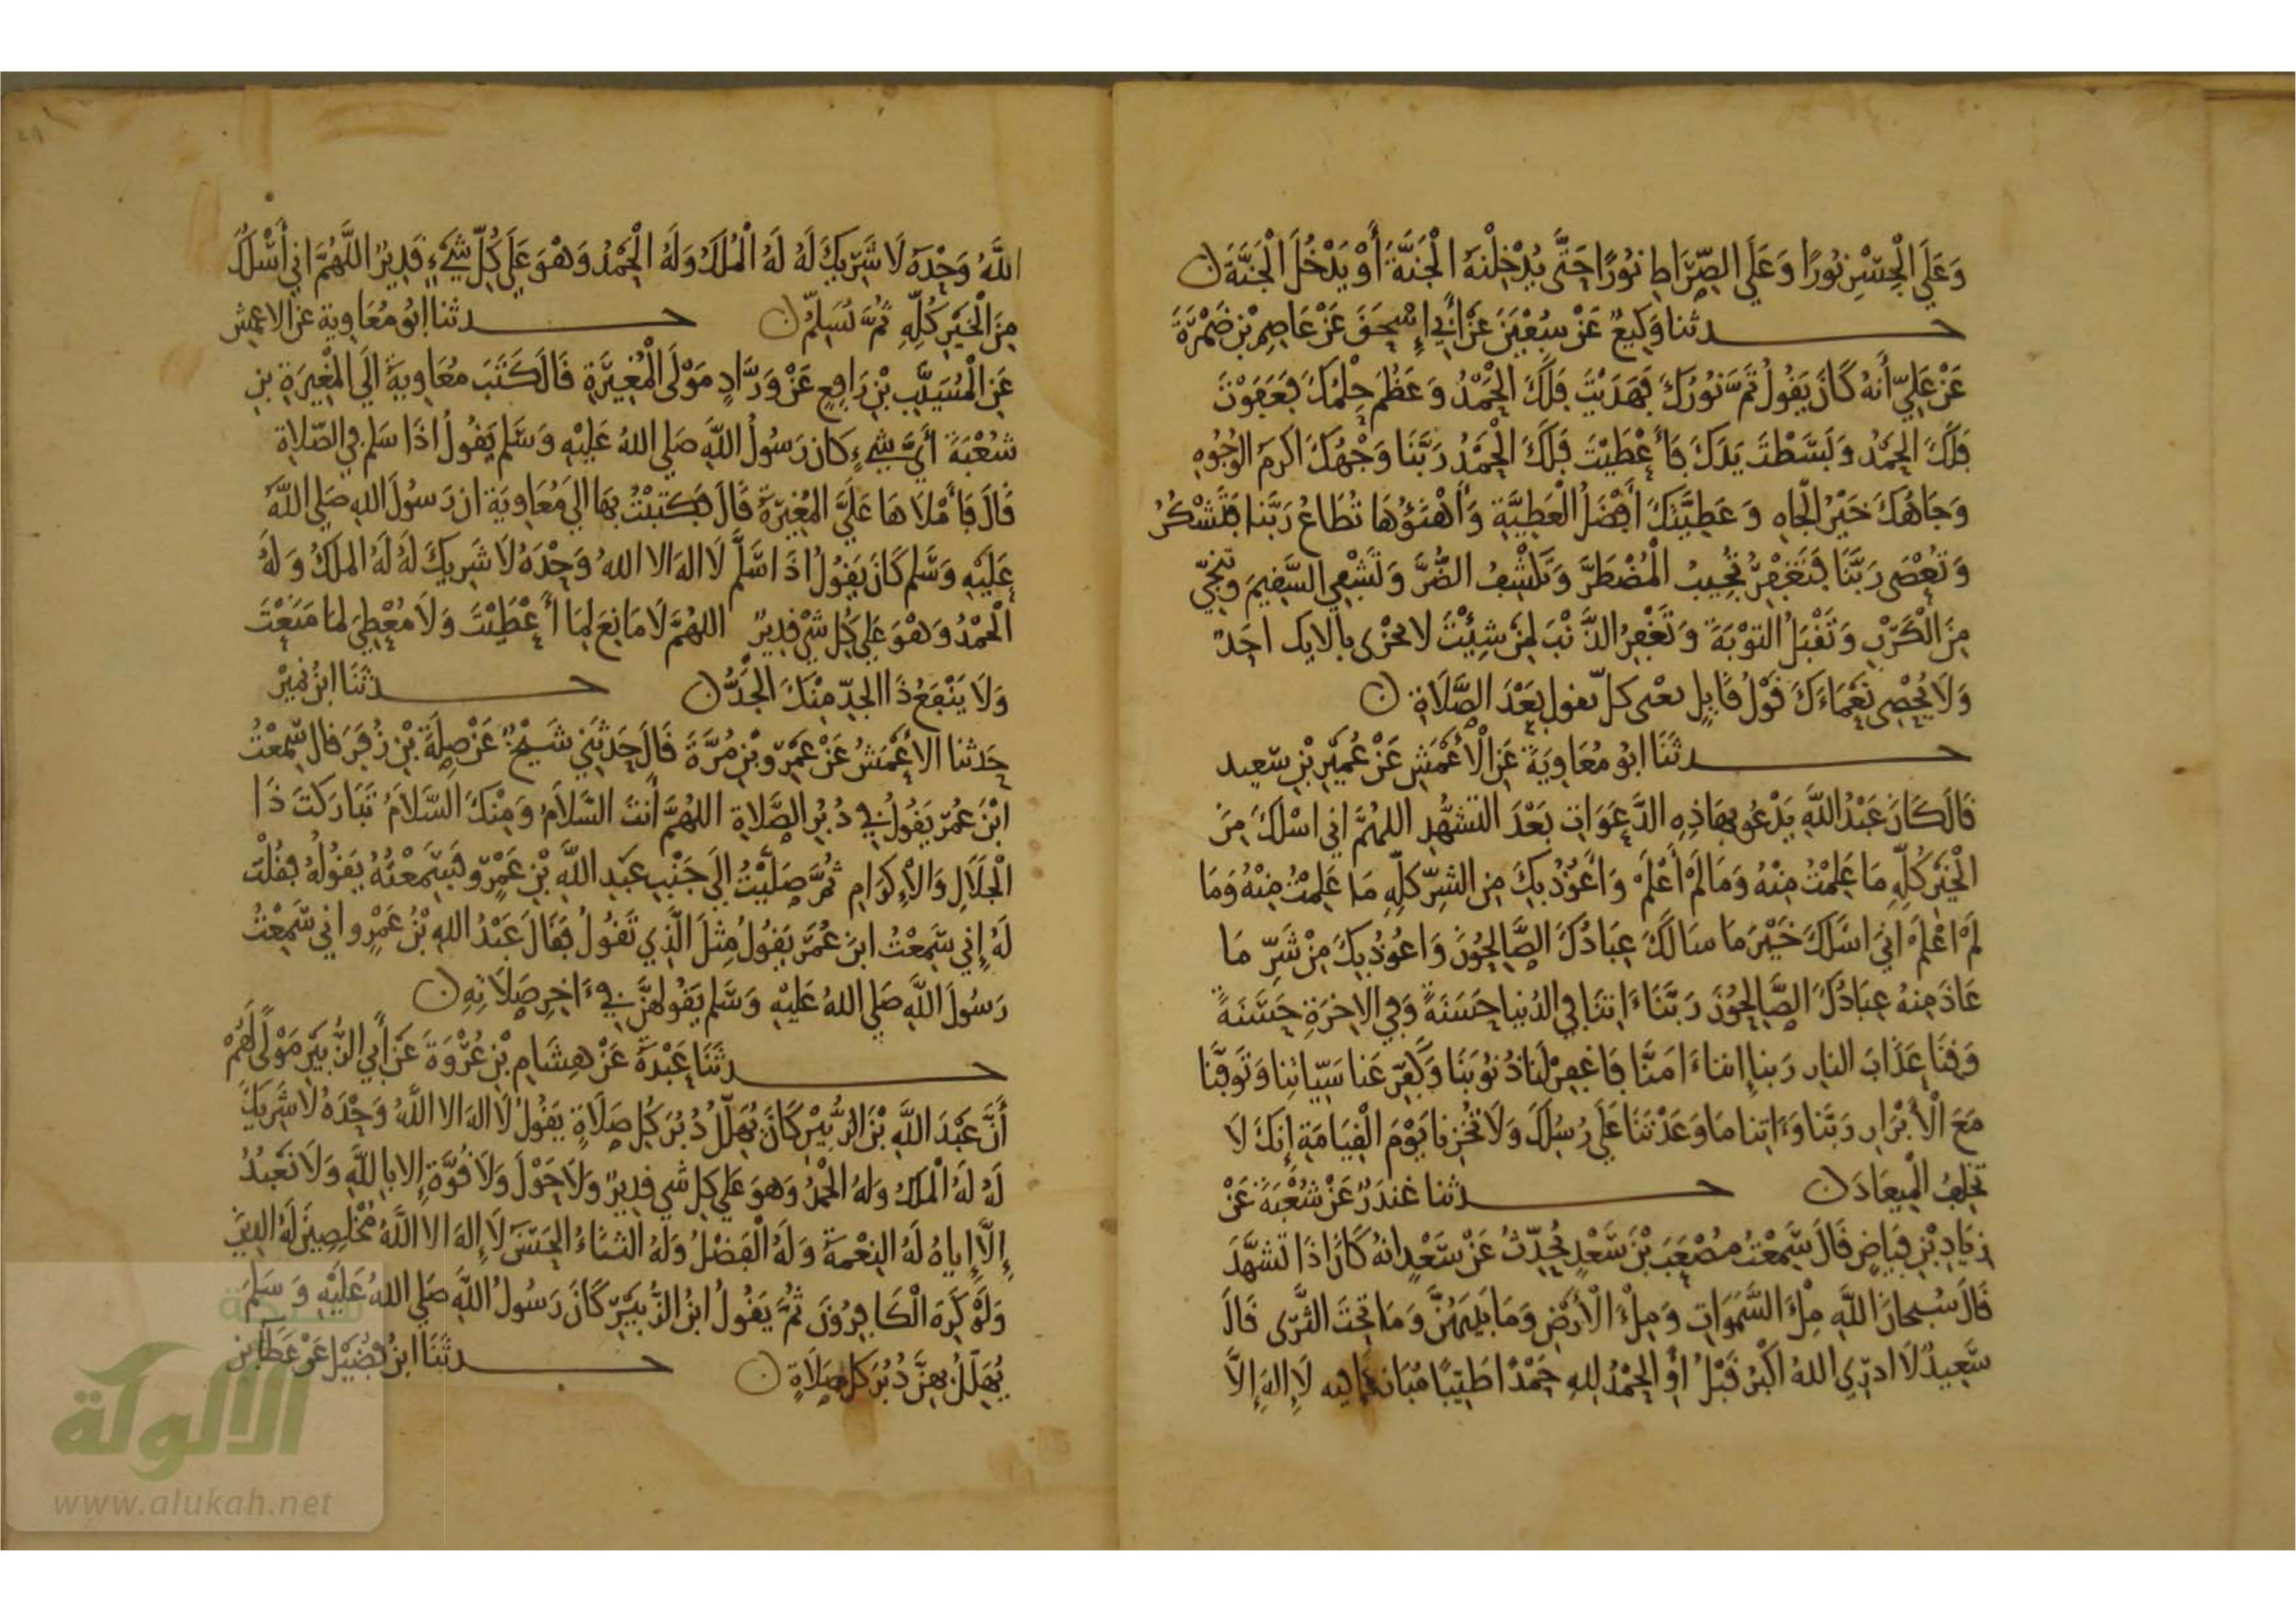 وَعَلَى الْجِسْرِ نُورًا وَعَلَى الصِّرَاطِ نُورًا حَتَّى يُدْخِلْنَهُ الْجَنَّةَ أَوْ يَدْخُلَ الْجَنَّةَ ن
حدثنا وَكِيعٌ عَنْ سُفْيَنَ عَنْ أَبِي إِسْحَقَ عَنْ عَاصِمِ بْنِ ضَمْرَةَ
عَنْ عَلِيٍّ أَنهُ كَانَ يَقُولُ تَمَّ نُورُكَ فَهَدَيْتَ فَلَكَ الْحَمْدُ وَعَظُمَ حِلْمُكَ فَعَفَوْتَ
فَلَكَ الْحَمْدُ وَبَسَطْتَ يَدَكَ فَأَعْطَيْتَ فَلَكَ الْحَمْدُ رَبَّنَا وَجْهُكَ اكْرَمُ الْوُجُوهِ
وَجَاهُكَ خَيْرُ الْجَاهِ وَعَطِيَّتُكَ أَفْضَلُ الْعَطِيَّةِ وَأَهْنَؤُهَا تُطَاعُ رَبَّنا فَتَشْكُرُ
وَتُعْصَى رَبَّنَا فَتَغْفِرُ تُجِيبُ الْمُضْطَرَّ وَتَكْشِفُ الضُّرَّ وَتَشْفِي السَّقِيمَ وَتُنْجِي
مِنَ الْكَرْبِ وَتَقْبَلُ التَّوْبَةَ وَتَغْفِرُ الذَّنْبَ لِمَنْ شِئْتَ لا يجْزى بِآلايك احَدٌ
وَلَا يُحْصِي نَعْمَاءَكَ قَوْلُ قَايِلٍ يعْنى كلّ يقول بَعْدَ الصَّلَاةِ ن
حدثَنَا ابُو مُعَاوِيَةَ عَنِ الْأَعْمَشِ عَنْ عُمَيْرِ بْنِ سَعِيد
قَالَ كَانَ عَبْدُ اللَّهِ يَدْعُو بِهَاذِهِ الدَّعَوَاتِ بَعْدَ التشَهُّدِ اللهُمَّ اني اسْلُكَ مِنَ
الْخَيْرِ كُلِّهِ مَا عَلِمْتُ مِنْهُ وَمَا لَمْ أَعْلَمْ وَأَعُوذُ بِكَ مِنَ الشَّرِّ كُلِّهِ مَا عَلِمْتُ مِنْهُ وَمَا
لَمْ اعْلَمْ انِّي اسْلُكَ خَيْرَ مَا سَالَكَ عِبَادُكَ الصَّالِحُونَ وَاعُوذُ بِكَ مِنْ شَرِّ مَا
عَاذَ مِنهُ عِبَادُكَ الصَّالِحُونَ رَبَّنَا ءَاتِنَا فِي الدُّنيا حَسَنَةً وَفِي الاخِرَةِ حَسَنَةً
وَقِنَا عَذَابَ النارِ رَبنا إننا ءَامَنَّا فَاغْفِرْ لَنَا ذُنُوبَنَا وَكَفِّرْ عَنا سَيِّيَاتِنا وَتَوَفَّنَا
مَعَ الْأَبْرَارِ رَبَّنا وَءَاتِنا مَا وَعَدْتَنَا عَلَى رُسُلِكَ وَلَا تُخْزِنا يَوْمَ الْقِيَامَةِ إِنكَ لَا
تُخْلِفُ الْمِيعَادَ ن حدثنا غندَرٌ عَنْ شُعْبَةَ عَنْ
زِيَادِ بْنِ فَيَّاضٍ قَالَ سَمِعْتُ مُصْعَبَ بْنَ سَعْدٍ يُحَدِّثُ عَنْ سَعْدٍ انهُ كَانَ اذَا تَشَهَّدَ
قَالَ سُبحانَ اللَّهِ مِلْءَ السَّمَوَاتِ وَمِلْءَ الْأَرْضِ وَمَا بَيْنَهُنَّ وَمَا تَحْتَ الثَّرَى قَالَ
سَعِيدٌ لَا ادرِي اللهُ اكْبَرُ قَبْلُ اوِ الْحَمْدُ لِلهِ حَمْدًا طَيِّبًا مُبَارَكًا فِيه لَا إِلهَ إِلَّا
اللَّهُ وَحْدَهُ لَا شَرِيكَ لَهُ لَهُ الْمُلْكُ وَلَهُ الْحَمْدُ وَهْوَ عَلَى كُلِّ شَيْءٍ قَدِيرٌ اللَّهُمَّ انِي أَسْلُكَ
مِنَ الْخَيْرِ كُلِّهِ ثُمَّ يُسَلِّمُ ن حدثنا ابُو مُعَاوِيةَ عنِ الاعمش
عَنِ الْمُسَيَّبِ بْنِ رَافِعٍ عَنْ وَرَّادٍ مَوْلَى الْمُغِيرَةِ قَالَ كَتَبَ مُعَاوِيةُ الَى الْمُغِيرَةِ بنِ
شُعْبَةَ أَيُّ شَيْءٍ كَانَ رَسُولُ اللَّهِ صَلى اللهُ عَلَيْهِ وَسَلم يَقُولُ اذَا سَلم فِي الصّلاةِ
قَالَ فَأَمْلَاهَا عَلَيَّ الْمُغِيرَةُ قَالَ فَكَتبْتُ بهَا الَى مُعَاوِيَة ان رَسُولَ اللهِ صَلى اللَّهُ
عَلَيْهِ وَسَلم كَانَ يَقُولُ اذَا سَلَّمَ لَا الهَ الا اللهُ وَحْدَهُ لَا شَرِيكَ لَهُ لَهُ الملْكُ وَلَهُ
الْحَمْدُ وَهْوَ عَلَى كُلِّ شَيْ قَدِيرٌ اللهُمَّ لَا مَانِعَ لِمَا أَعْطَيْتَ وَلَا مُعْطِيَ لمَا مَنَعْتَ
وَلَا يَنْفَعُ ذَا الجَدِّ مِنْكَ الجَدُّ ن حدثَنَا ابْنُ نُمَيْرٍ
حَدثنا الأعْمَشُ عَنْ عَمْرِو بْنِ مُرَّةَ قَالَ حَدثَنِي شَيْخٌ عَنْ صِلَةَ بْنِ زُفَرَ قال سَمِعْتُ
ابْنَ عُمَرَ يَقُولُ فِي دُبُرِ الصَّلاةِ اللهُمَّ أَنتَ السَّلَامُ وَمِنْكَ السَّلَامُ تَبَارَكْتَ ذَا
الْجَلَالِ وَالْإِكْرَامِ ثُمَّ صَلَّيْتُ الَى جَنْبِ عَبْدِ اللَّهِ بْنِ عَمْرٍو فَسَمِعْتُهُ يَقُولُهُ فَقُلْتُ
لَهُ إِنِي سَمِعْتُ ابنَ عُمَرَ يَقُولُ مِثلَ الَّذِي تَقُولُ فَقَالَ عَبْدُ اللهِ بْنُ عَمْرٍو اني سَمِعْتُ
رَسُولَ اللَّهِ صَلى اللهُ عَلَيْهِ وَسَلم يَقُولهُنَّ فِي ءَاخِرِ صَلَاتِهِ ن
حدثَنَا عَبْدَةُ عَنْ هِشَامِ بْنِ عُرْوَةَ عَنْ أَبِي الزُّبَيْرِ مَوْلًى لَهُمْ
أَنَّ عَبْدَ اللَّهِ بْنَ الزُّبَيْرِ كَانَ يُهَلِّلُ دُبُرَ كُلِّ صَلَاةٍ يَقُولُ لَا الهَ الا اللَّهُ وَحْدَهُ لَا شَرِيكَ
لَهُ لَهُ الْملْكُ وَلَهُ الْحَمْدُ وَهوَ عَلَى كل شَي قَدِيرٌ وَلَا حَوْلَ وَلَا قُوَّةَ إِلا بِاللَّهِ وَلَا نَعْبُدُ
إِلَّا إِياهُ لَهُ النِعْمَةُ وَلَهُ الْفَضْلُ وَلَهُ الثنَاءُ الْحَسَنُ لَا إِلهَ الا اللَّهُ مُخْلِصِينَ لَهُ الدِينَ
وَلَوْ كَرِهَ الْكَافِرُونَ ثُمَّ يَقُولُ ابْنُ الزُّبَيْرِ كَانَ رَسُولُ اللَّهِ صَلى اللهُ عَلَيْهِ وَسَلمَ
يُهَلِّلُ بِهِنَّ دُبُرَ كُلِّ صَلَاةٍ ن حدثَنَا ابنُ فُضَيْلٍ عَنْ عَطَاءِ بْنِ
الألوكة
www.alukah.net